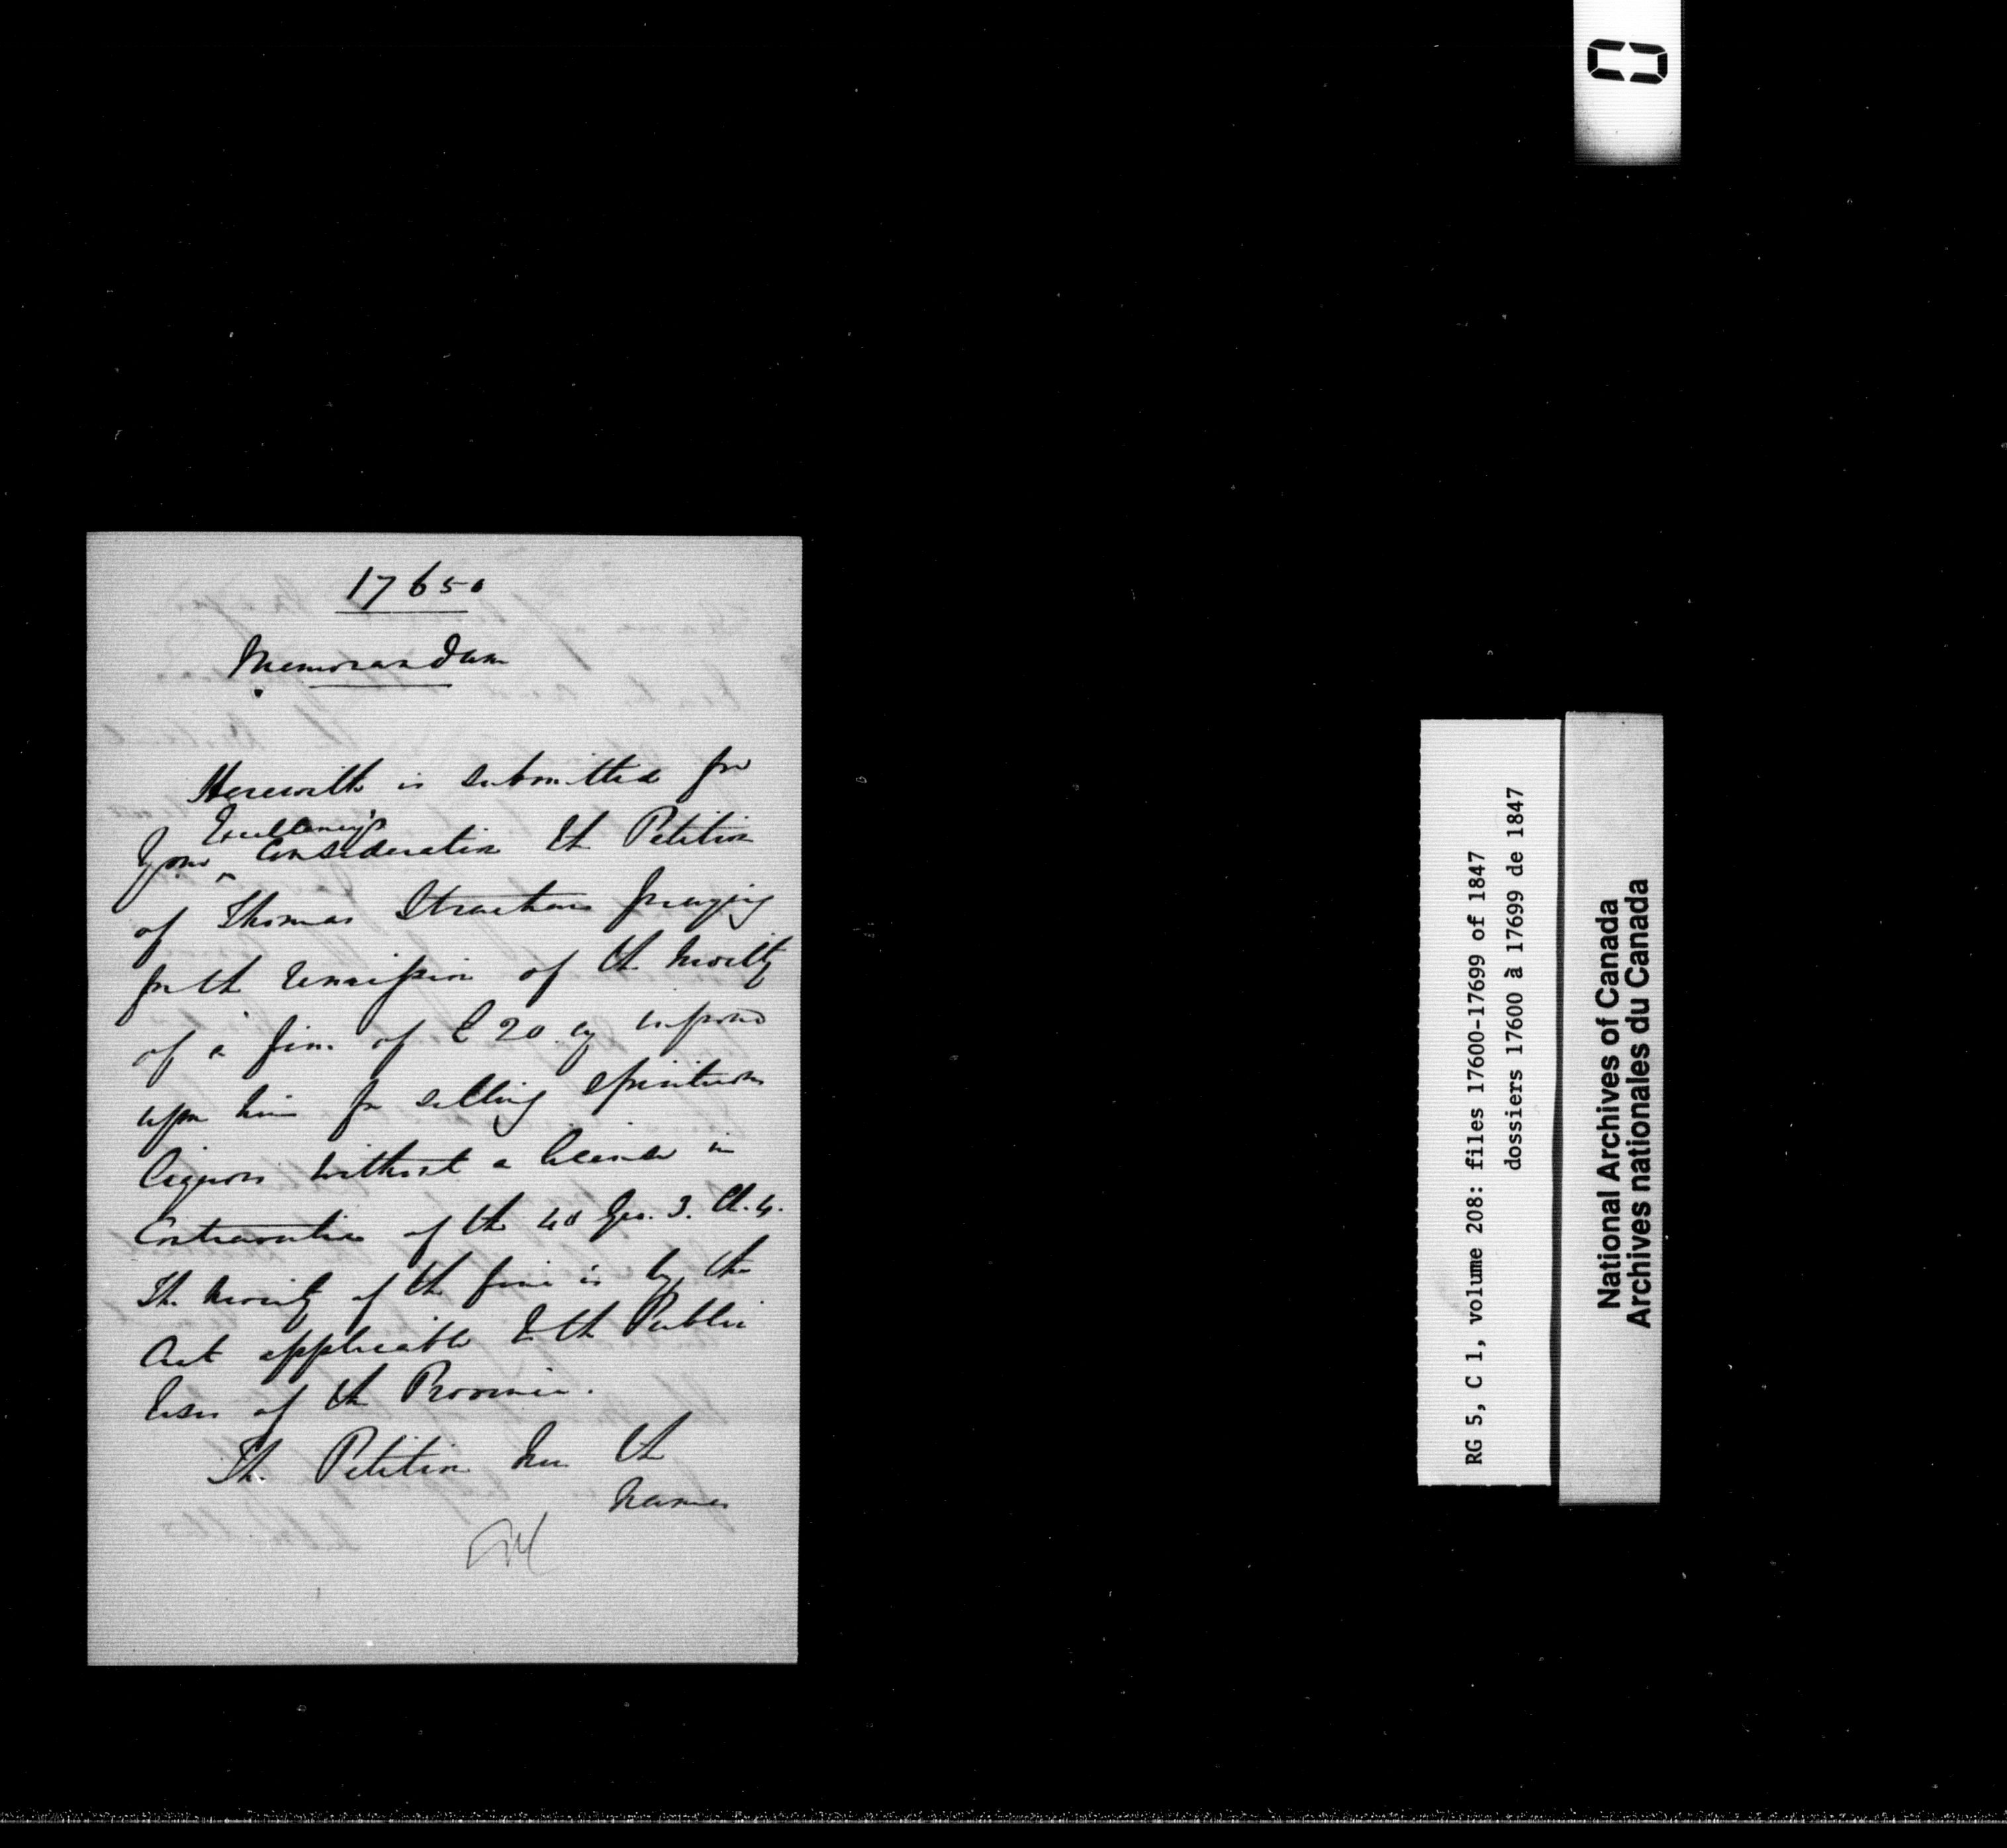 17650
Memorandum
Herewith is submitted for
Your Excellency's Consideration the Petition
of Thomas Strachan praying
for the remission of the moiety
of a fine of £20 cy imposed
upon him for selling spirituous
Liquors without a license in
Contravention of the 40 Geo. 3. Ch. 4.
The moiety of the fine is by the
Act applicable to the Public
Uses of the Province.
The Petition has the
names
RG 5, C 1, volume 208: files 17600-17699 of 1847
dossiers 17600 à 17699 de 1847
National Archives of Canada
Archives nationales du Canada